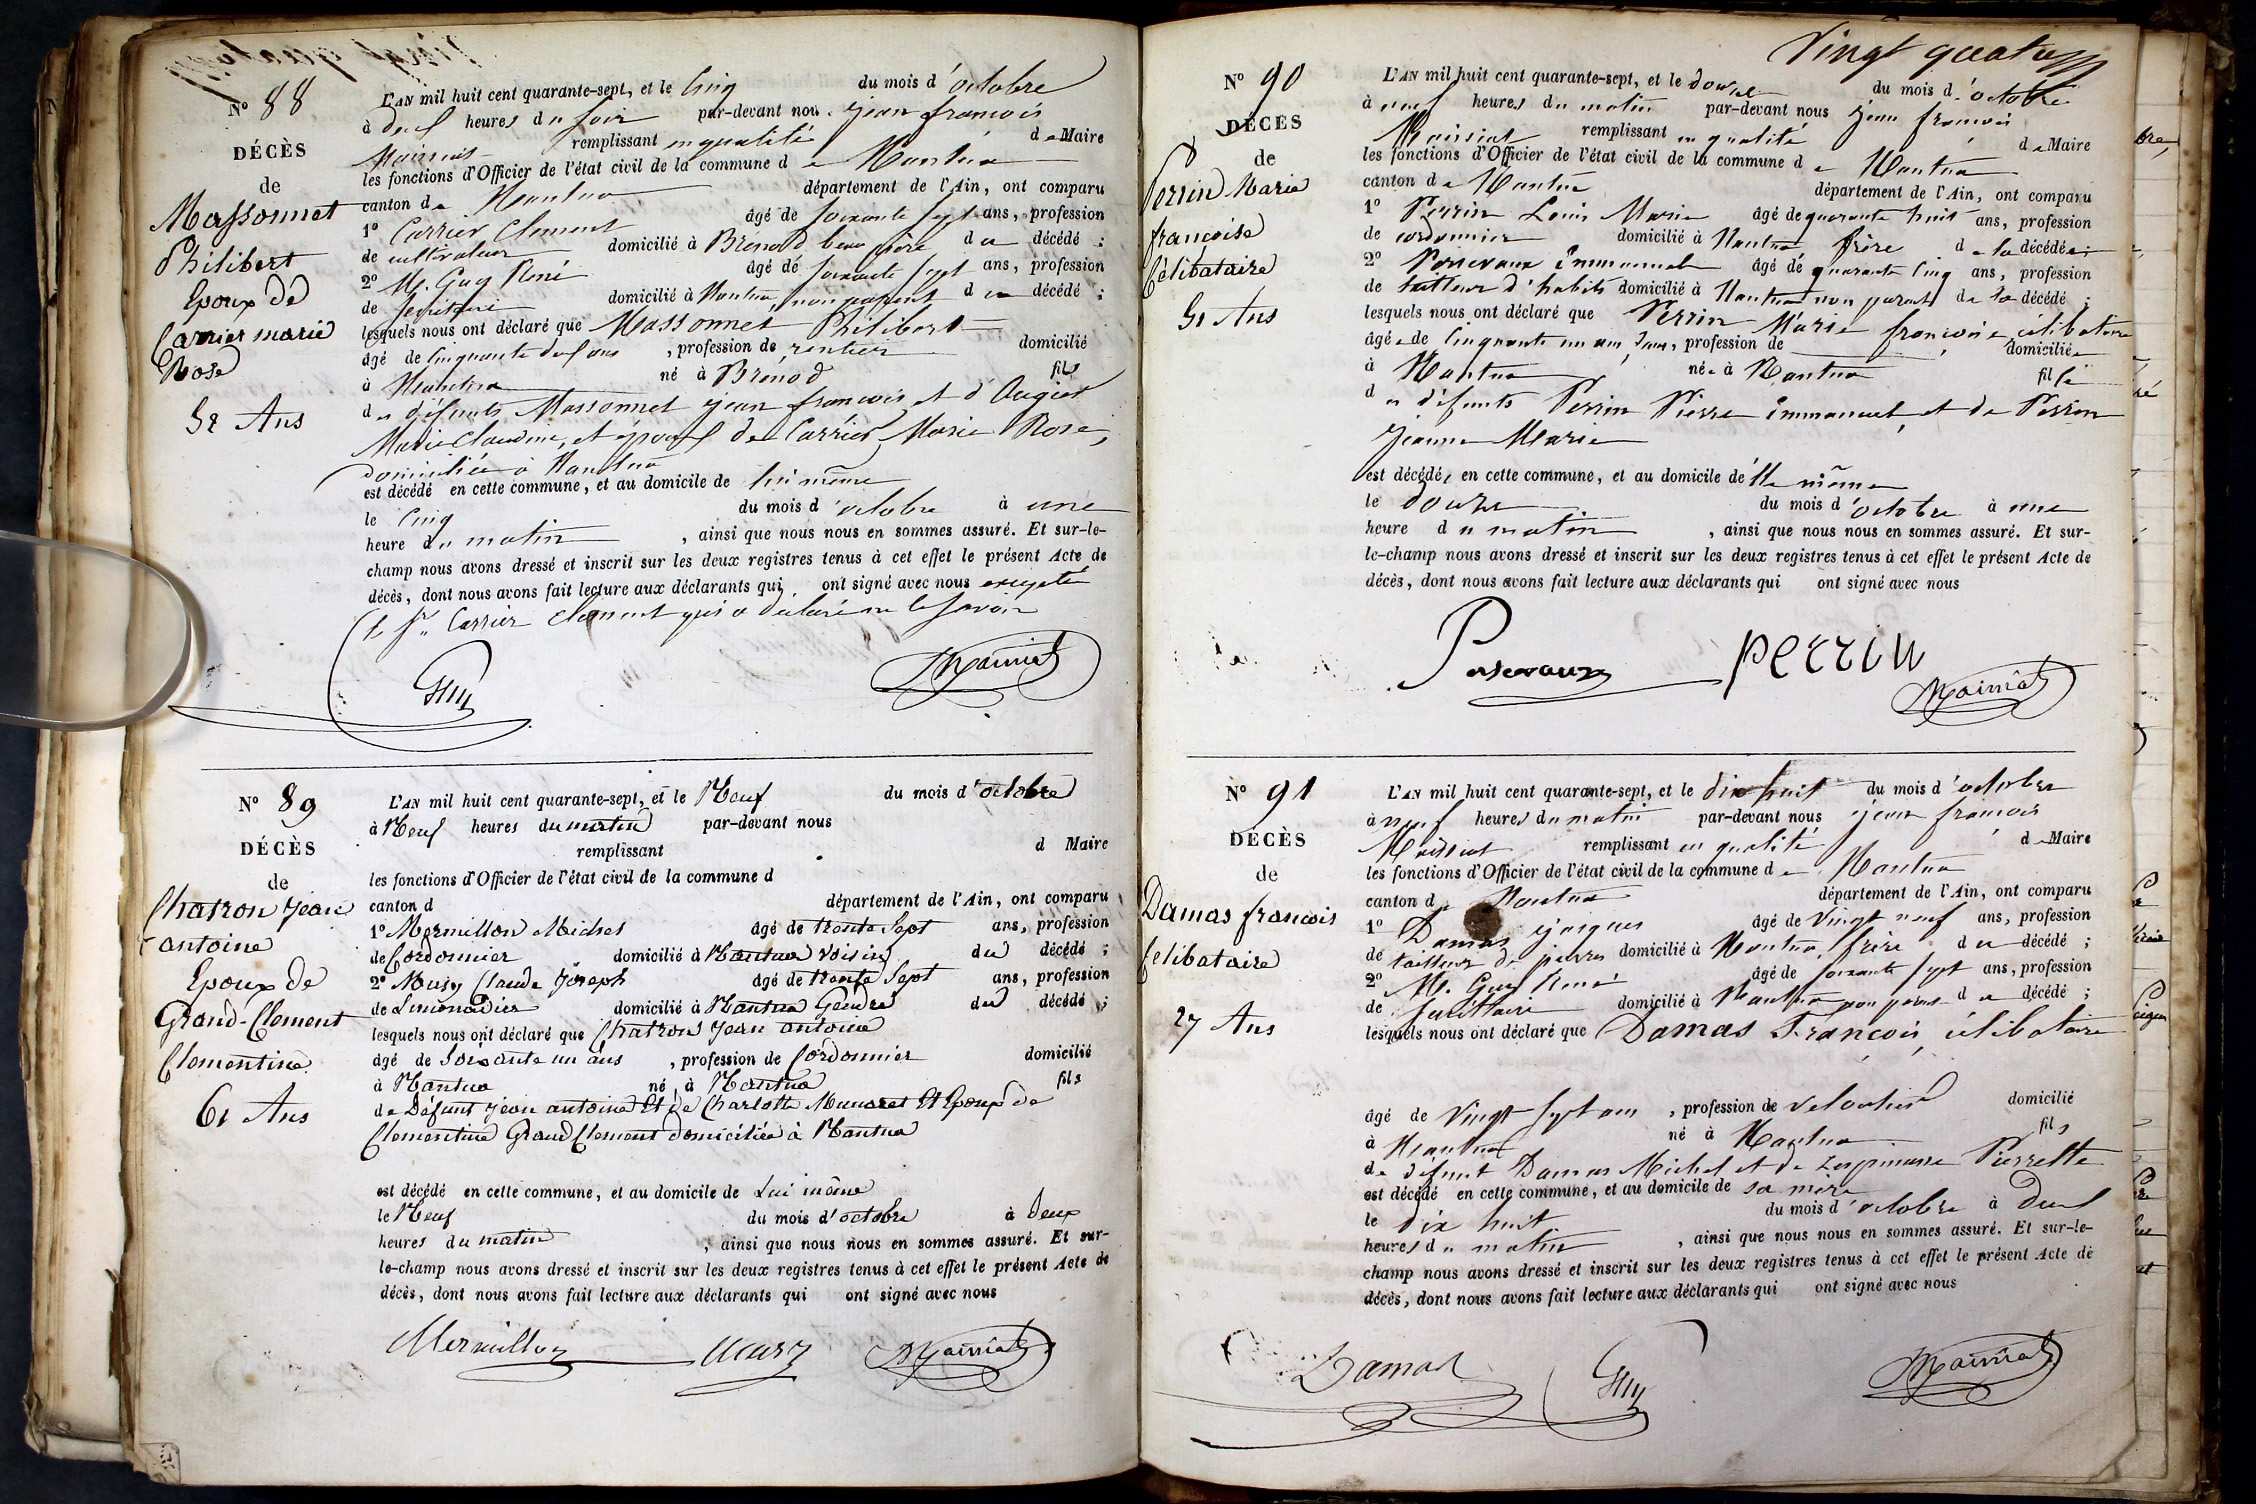 N° 88
DÉCÈS
de
Massonnet
Philibert
Epoux de
Carrier marie
Rose
52 Ans
L'AN mil huit cent quarante-sept, et le Cinq du mois d'octobre
à deux heures du soir par-devant nous jean françois
Maissiat remplissant en qualité de Maire
les fonctions d'Officier de l'état civil de la commune de Nantua
canton de Nantua département de l'Ain, ont comparu
1° Carrier Clement âgé de soixante sept ans, profession
de cultivateur domicilié à Brenod beau père du décédé ;
2° M. Guy René âgé de soixante sept ans, profession
de secrétaire domicilié à Nantua, non parent du décédé ;
lesquels nous ont déclaré que Massonnet Philibert
âgé de Cinquante deux ans, profession de rentier domicilié
à Nantua né à Brenod fils
des défunts Massonnet jean françois et d'Augier
Marie Claudine, et époux de Carrier Marie Rose,
domiciliée à Nantua
est décédé en cette commune, et au domicile de lui même
le Cinq du mois d'octobre à une
heure du matin, ainsi que nous nous en sommes assuré. Et sur-le-
champ nous avons dressé et inscrit sur les deux registres tenus à cet effet le présent Acte de
décès, dont nous avons fait lecture aux déclarants qui ont signé avec nous excepté
le sr. Carrier Clement qui a déclaré ne le savoir
Guy Maissiat
N° 89
DÉCÈS
de
Chatron Jean
antoine
Epoux de
Grand-Clement
Clementine
61 Ans
L'AN mil huit cent quarante-sept, et le Neuf du mois d'octobre
à Neuf heures du matin par-devant nous
remplissant d Maire
les fonctions d'Officier de l'état civil de la commune d
canton d département de l'Ain, ont comparu
1° Mermillon Michel âgé de trente Sept ans, profession
de Cordonnier domicilié à Nantua voisin du décédé ;
2° Musy Claude Joseph âgé de trente Sept ans, profession
de Limonadier domicilié à Nantua Gendre du décédé ;
lesquels nous ont déclaré que Chatron Jean antoine
âgé de Soixante un ans, profession de Cordonnier domicilié
à Nantua né à Nantua fils
de Défunt Jean antoine Et de Charlotte Munaret Et Epoux de
Clementine Grand Clement domiciliée à Nantua
est décédé en cette commune, et au domicile de Lui même
le Neuf du mois d'octobre à Deux
heures du matin, ainsi que nous nous en sommes assuré. Et sur-
le-champ nous avons dressé et inscrit sur les deux registres tenus à cet effet le présent Acte de
décès, dont nous avons fait lecture aux déclarants qui ont signé avec nous
Mermillon Musy Maissiat
Vingt quatre
N° 90
DÉCÈS
de
Perrin Marie
françoise
Célibataire
51 Ans
L'AN mil huit cent quarante-sept, et le douze du mois d'octobre
à neuf heures du matin par-devant nous jean françois
Maissiat remplissant en qualité de Maire
les fonctions d'Officier de l'état civil de la commune de Nantua
canton de Nantua département de l'Ain, ont comparu
1° Perrin Louis Marie âgé de quarante huit ans, profession
de cordonnier domicilié à Nantua frère de la décédée ;
2° Persevaux Emmanuel âgé de quarante Cinq ans, profession
de tailleur d'habits domicilié à Nantua non parent de la décédé ;
lesquels nous ont déclaré que Perrin Marie françoise célibataire
âgée de Cinquante un ans, profession de domiciliée
à Nantua née à Nantua fille
des défunts Perrin Pierre Emmanuel, et de Perrin
Jeanne Marie
est décédée en cette commune, et au domicile d'elle même
le douze du mois d'octobre à une
heure du matin, ainsi que nous nous en sommes assuré. Et sur-
le-champ nous avons dressé et inscrit sur les deux registres tenus à cet effet le présent Acte de
décès, dont nous avons fait lecture aux déclarants qui ont signé avec nous
Persevaux perrin Maissiat
N° 91
DÉCÈS
de
Damas françois
Célibataire
27 Ans
L'AN mil huit cent quarante-sept, et le dix huit du mois d'octobre
à neuf heures du matin par-devant nous jean françois
Maissiat remplissant en qualité de Maire
les fonctions d'Officier de l'état civil de la commune de Nantua
canton de Nantua département de l'Ain, ont comparu
1° Damas jacques âgé de Vingt neuf ans, profession
de tailleur de pierres domicilié à Nantua, frère du décédé ;
2° M. Guy René âgé de soixante sept ans, profession
de secrétaire domicilié à Nantua non parent du décédé ;
lesquels nous ont déclaré que Damas François, célibataire
âgé de Vingt Sept ans, profession de veloutier domicilié
à Nantua né à Nantua fils
de défunt Damas Michel et de Lespinasse Pierrette
est décédé en cette commune, et au domicile de sa mère
le dix huit du mois d'octobre à deux
heures du matin, ainsi que nous nous en sommes assuré. Et sur-le-
champ nous avons dressé et inscrit sur les deux registres tenus à cet effet le présent Acte de
décès, dont nous avons fait lecture aux déclarants qui ont signé avec nous
Damas Guy Maissiat